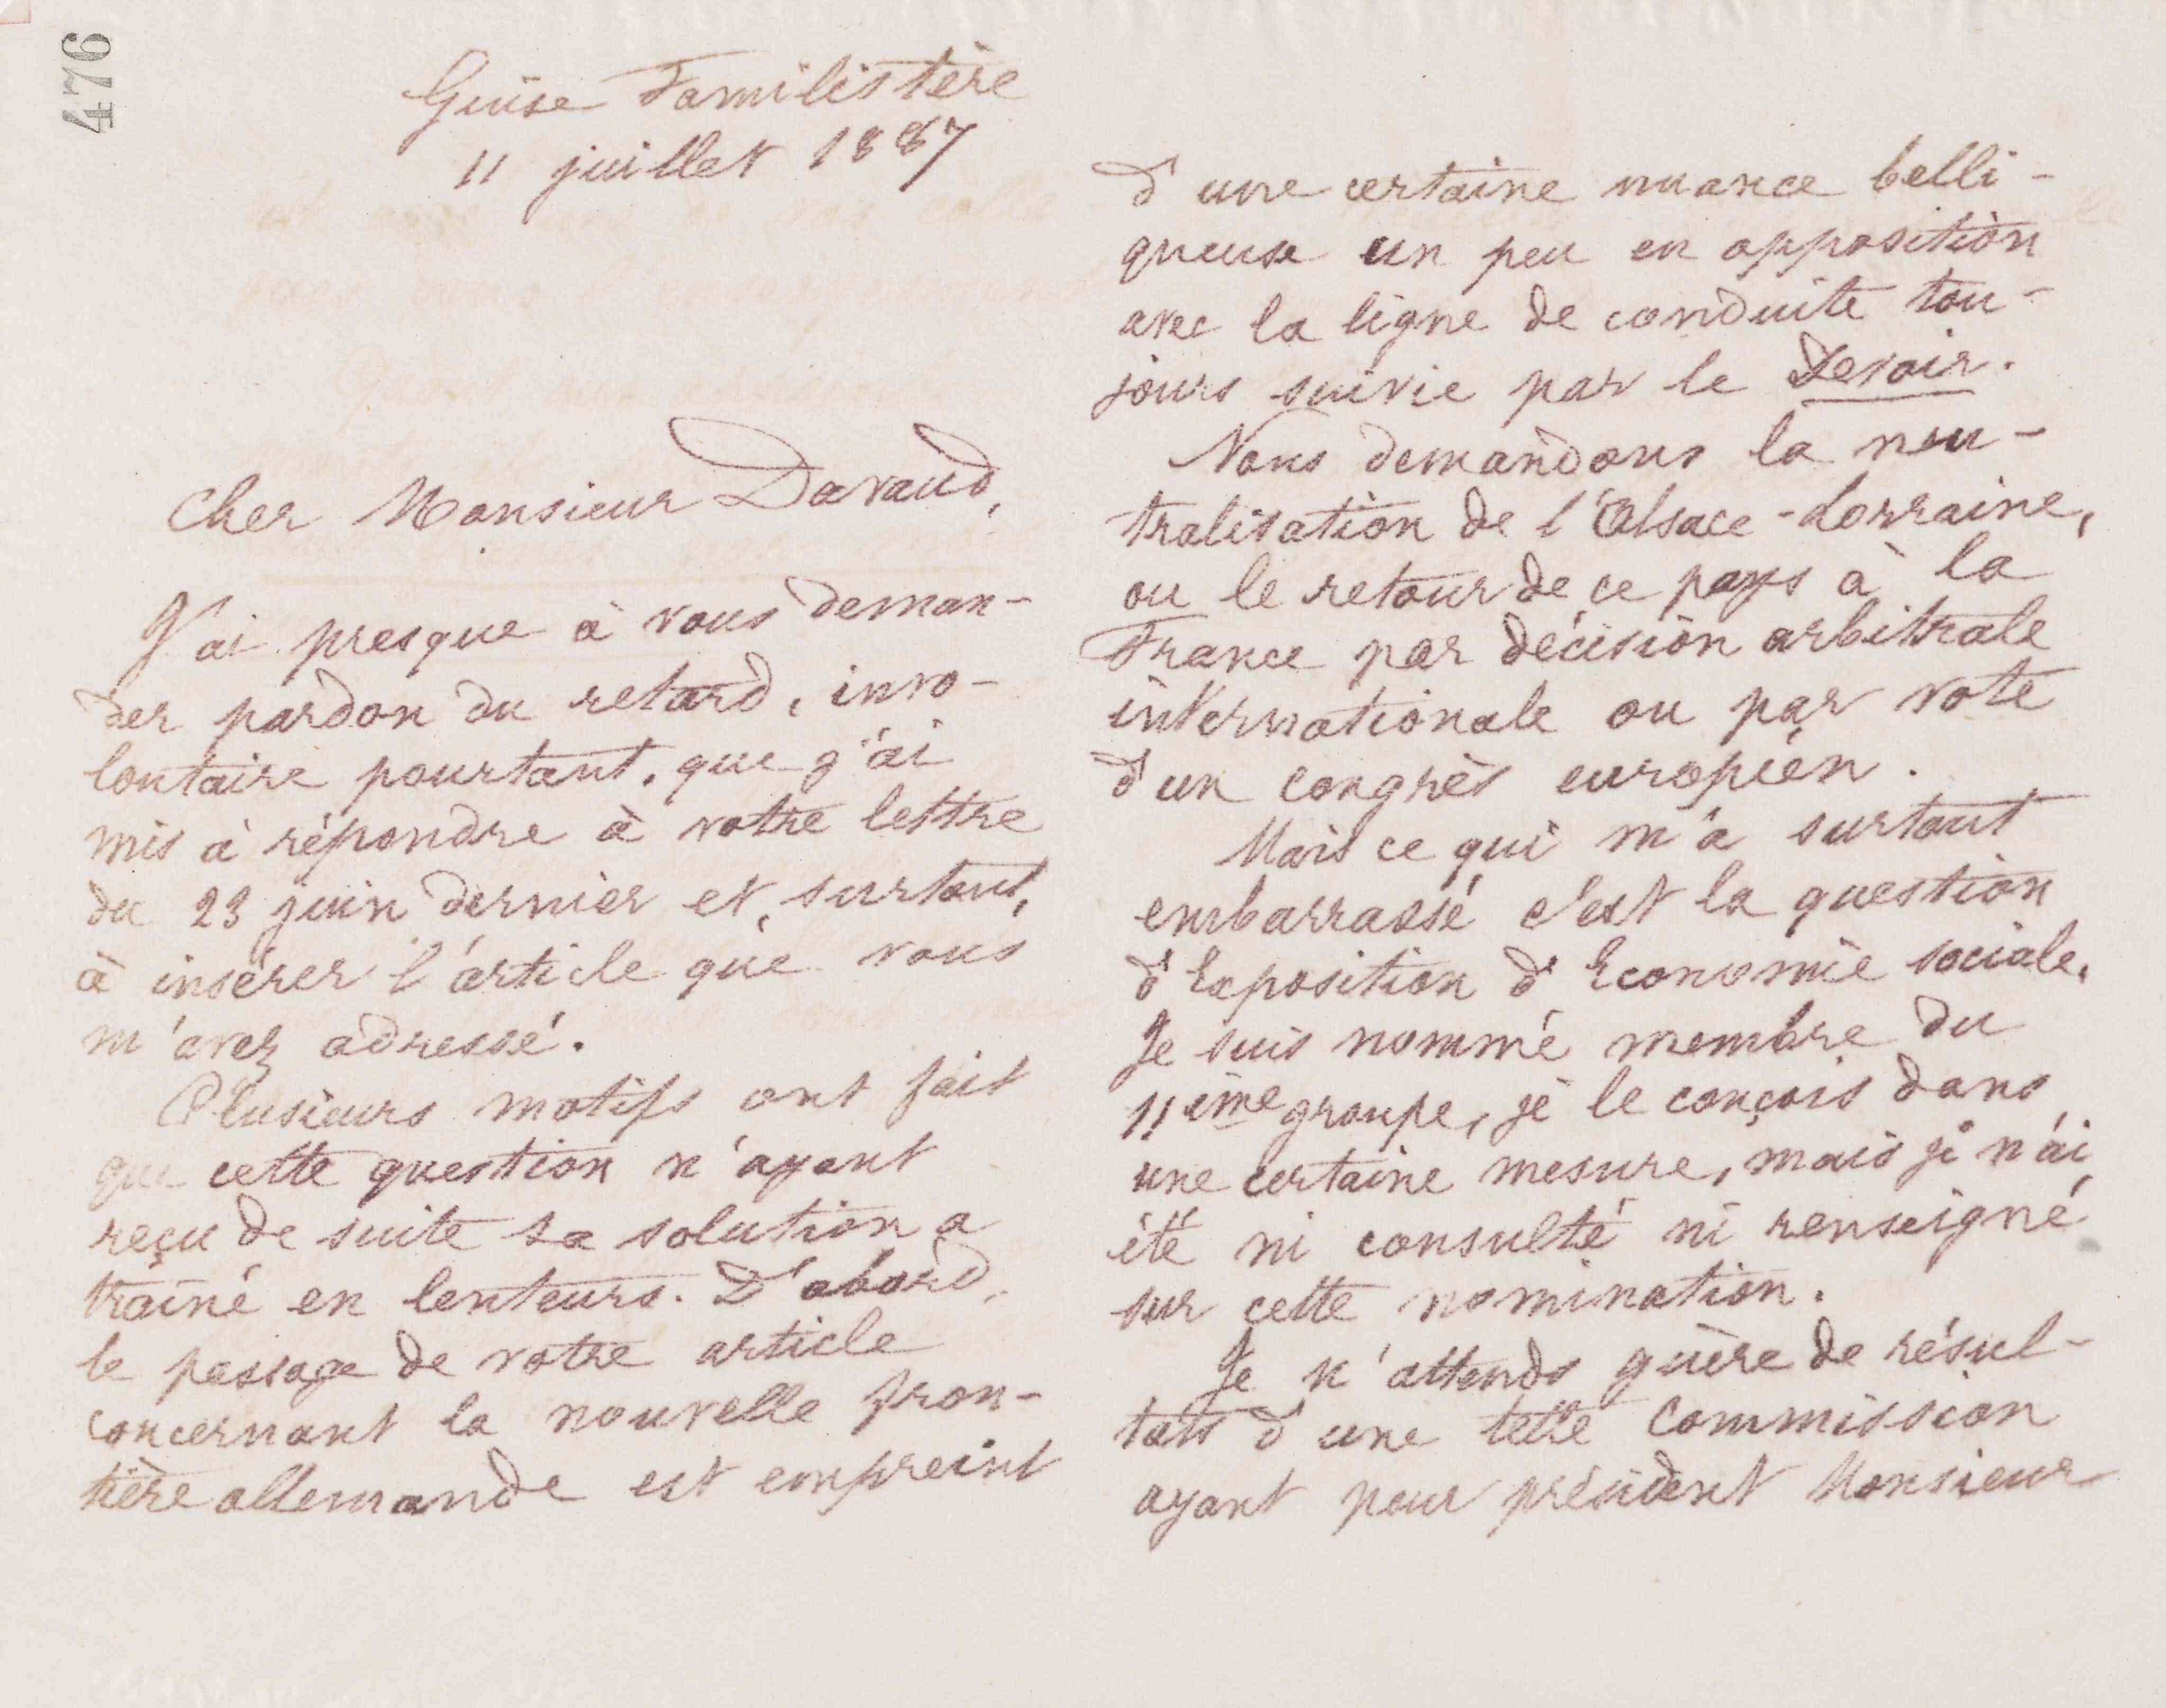 476
Guise Familistère
11 juillet 1887
Cher Monsieur Davaud,
J'ai presque à vous deman-
der pardon du retard, invo-
lontaire pourtant, que j'ai
mis à répondre à votre lettre
du 23 juin dernier et, surtout,
à insérer l'article que vous
m'avez adressé.
Plusieurs motifs ont fait
que cette question n'ayant
reçu de suite sa solution a
traîné en lenteurs. D'abord,
le passage de votre article
concernant la nouvelle fron-
tière allemande est empreint
d'une certaine nuance belli-
queuse un peu en opposition
avec la ligne de conduite tou-
jours suivie par le Devoir.
Nous demandons la neu-
tralisation de l'Alsace-Lorraine,
ou le retour de ce pays à la
France par décision arbitrale
internationale ou par vote
d'un congrès européen.
Mais ce qui m'a surtout
embarrassé c'est la question
d'Exposition d'Economie sociale.
Je suis nommé membre du
11ème groupe, je le conçois dans
une certaine mesure, mais je n'ai
été ni consulté ni renseigné
sur cette nomination.
Je n'attends guère de résul-
tats d'une telle Commission
ayant pour président Monsieur